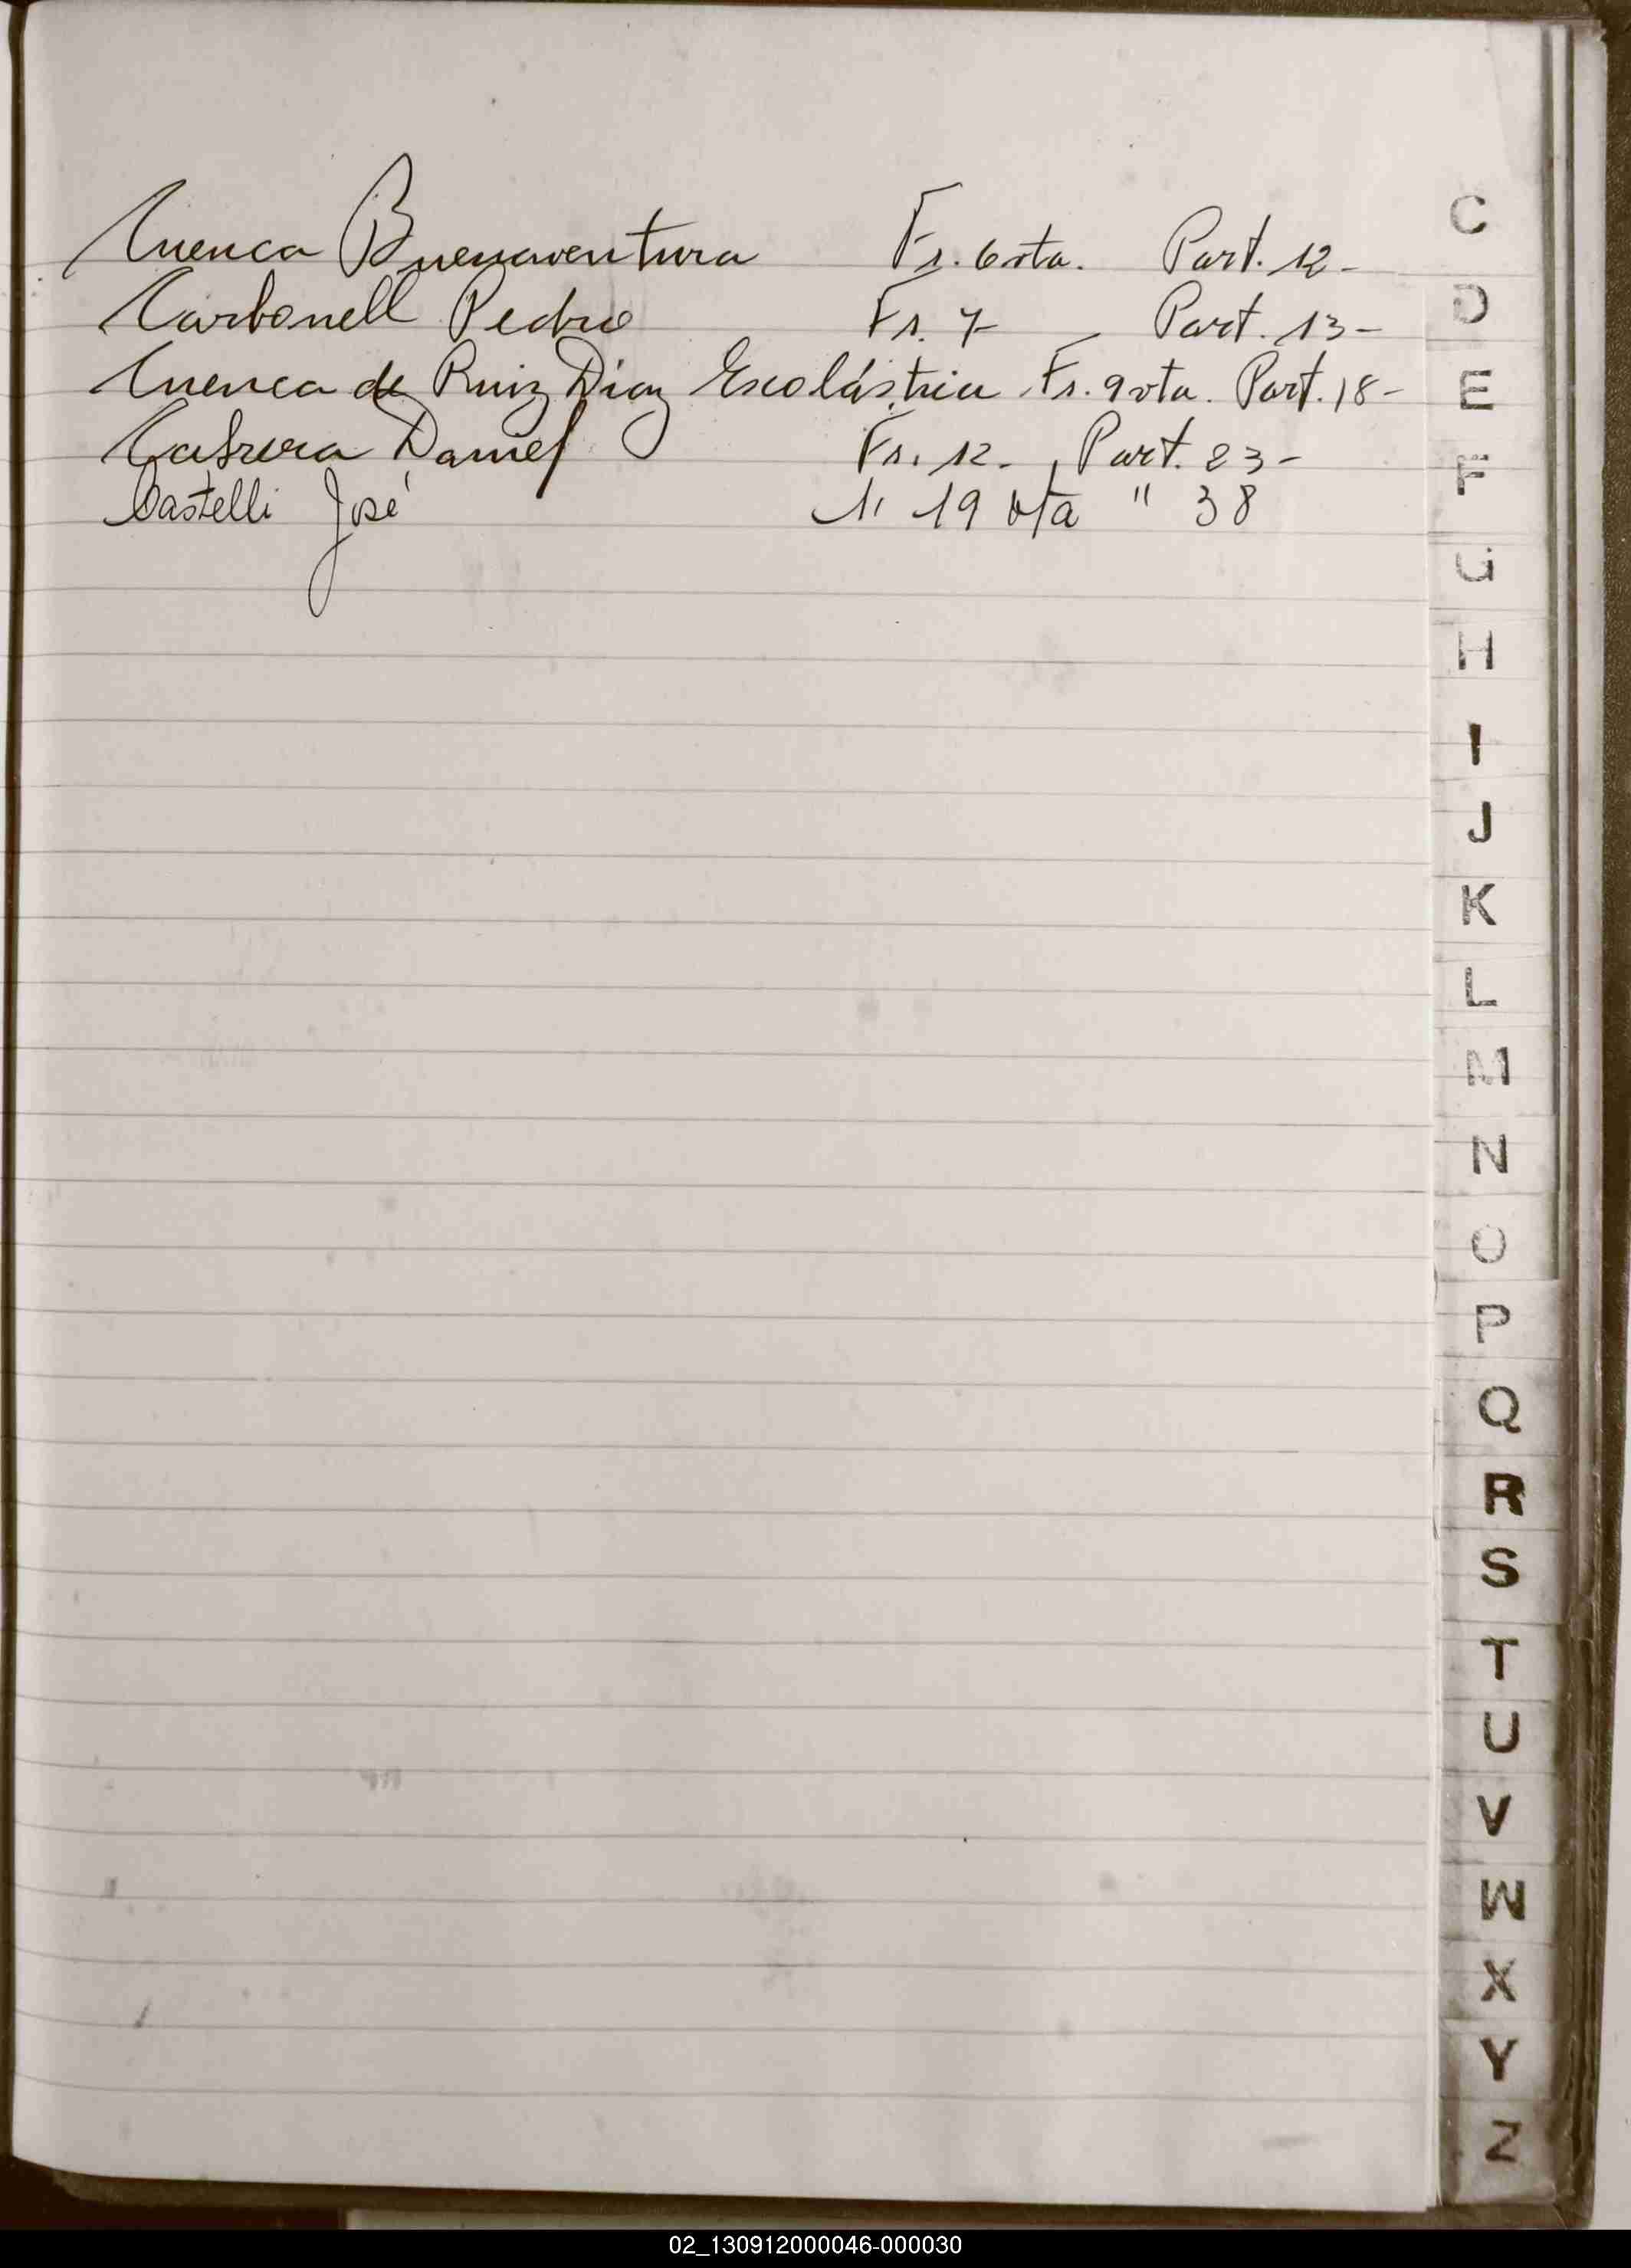 Cuenca Buenaventura Fs. 6 vta. Part. 12-
Carbonell Pedro Fs. 7- Part. 13-
Cuenca de Ruiz Diaz Escolástica Fs. 9 vta. Part. 18-
Cabrera Daniel Fs. 12- Part. 23-
Castelli José " 19 vta " 38
C
D
E
F
G
H
I
J
K
L
M
N
O
P
Q
R
S
T
U
V
W
X
Y
Z
02_130912000046-000030